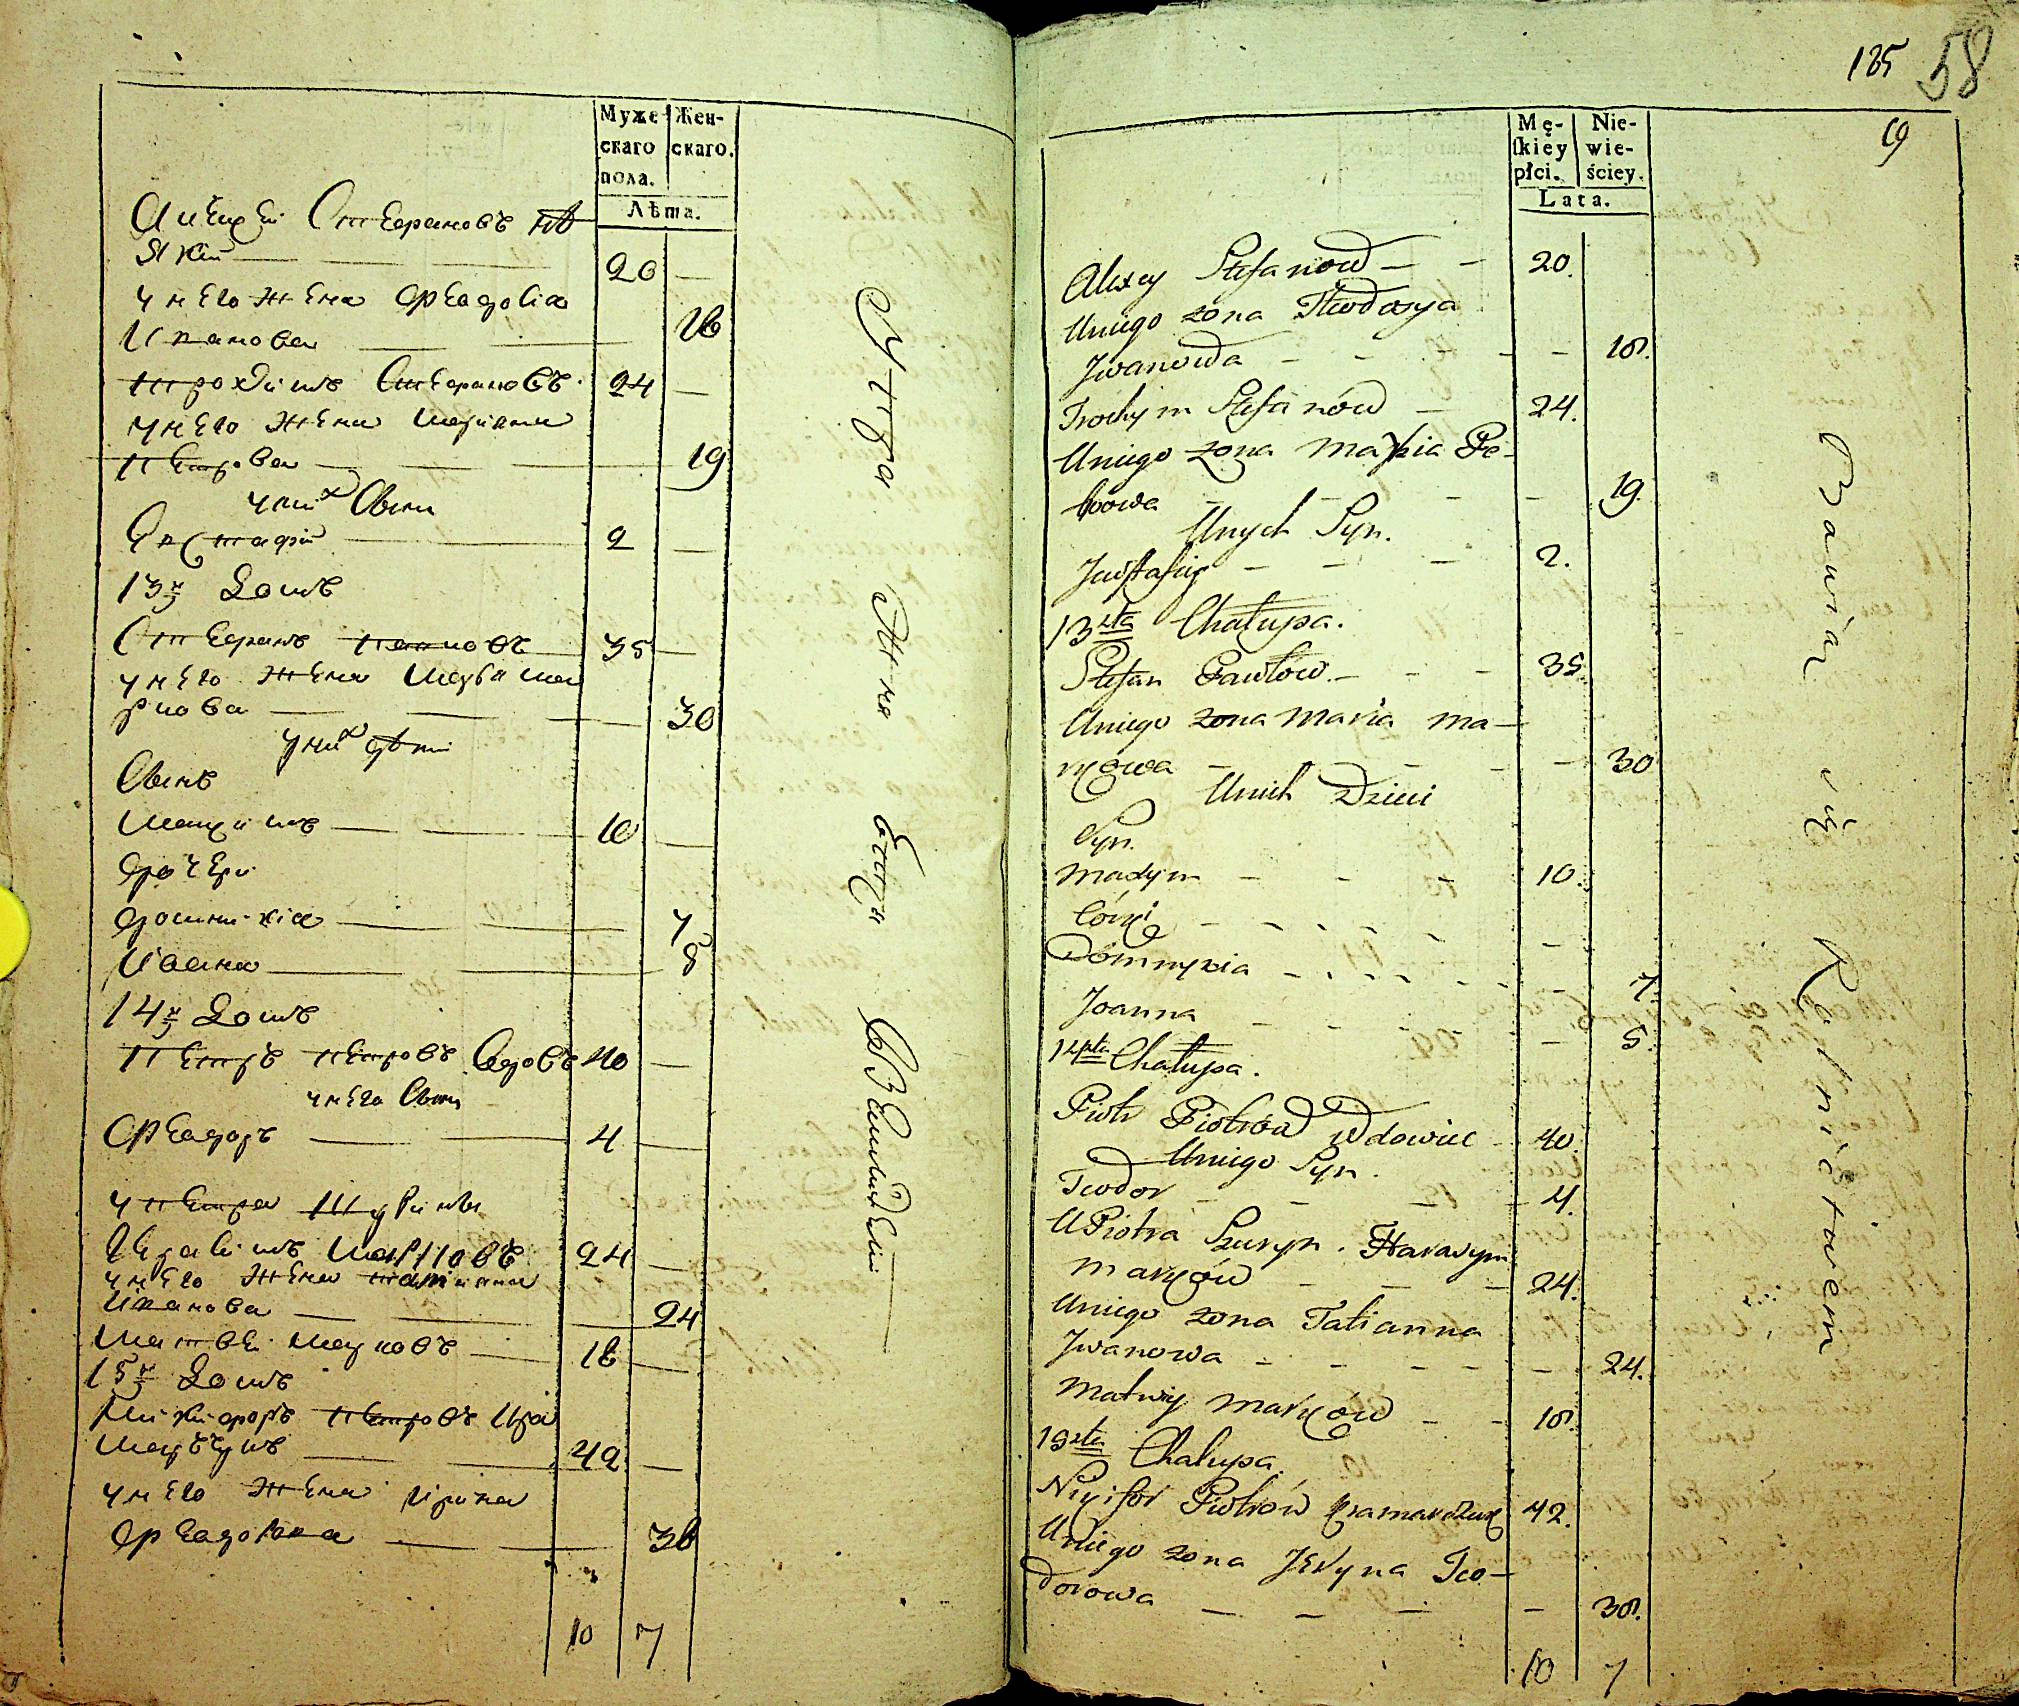 Муже-
скаго
пола.
Жен-
скаго.
Лѣта.
Алексѣй Стефановъ
20
у него жена Феодосїа
Иванова
18
Трохимъ Стефановъ
24
у него жена Марїана
Петрова
19
у них Сынъ
Евстафій
2
13й Домъ
Стефанъ Павловъ
35
у него жена Марїа Ма
ркова
30
у них дѣти
Сынъ
Максимъ
10
Дочери
Домникїа
7
Иоанна
5
14й Домъ
Петръ Петровъ вдовъ
40
у него Сынъ
Феодоръ
4
у Петра
Герасимъ Марковъ
24
у него жена Татианна
Иванова
24
Матвей Марковъ
18
15й Домъ
Никифоръ Петровъ Кра
марчукъ
42
у него жена Ирина
Феодорова
38
10 7
Утварь Жня баху Вземлидѣлїи
185 58
19
Mę-
skiey
płci.
Nie-
wie-
ściey.
Lata.
Alexey Stefanow
20.
Uniego zona Theodosya
Jwanowa
18.
Trochym Stefanów
24.
Uniego zona Maryia Pe-
trowa
19.
Unych Syn.
Jewstafiy
2.
13sta Chałupa.
Stefan Pawłów
35.
Uniego zona Maria Ma-
rkowa
30
Unich Dzieci
Syn.
Maxym
10.
Córki
Domnykia
7.
Joanna
5.
14sta Chałupa.
Piotr Piotrów Wdowiec
40.
Uniego Syn.
Teodor
4.
U Piotra Szuryn. Harasym
Markow
24.
Uniego zona Tatianna
Jwanowa
24.
Matwiy Marków
18.
15sta Chałupa.
Nikifor Piotrów Kramarczuk
42.
Uniego zona Jeryna Teo-
dorowa
38.
10 7
Bawią się Rolnictwem